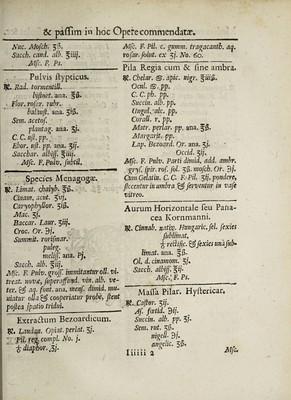 & passim in hoc Opere commendatæ.
Nuc. Mosch. ʒß.
Sacch. cand. alb. ℥iiij.
Msc. F. Ps.
Pulvis stypticus.
℞. Rad. tormentill.
bistort. ana ℥ß.
Flor. rosar. rubr.
balaust. ana ʒß.
Sem. acetos.
plantag. ana ʒj.
C. C. ust. pp.
Ebor. ust. pp. ana ʒij.
Sacchar. albiss. ℥iij.
Msc. F. Pulv. subtil.
Species Menagogæ.
℞. Limat. chalyb. ℥ß.
Cinam. acut. ʒvj.
Caryophyllor. ʒiß.
Mac. ʒj.
Baccar. Laur. ʒiij.
Croc. Or. ℈j.
Summit. rorismar.
puleg.
meliss. ana Pj.
Sacch. alb. ℥iij.
Msc. F. Pulv. gross. immitantur oll. vitreat. novæ, superaffund. vin. alb. veter. & aq. font. ana mens. dimid. muniatur olla & cooperiatur probe, stent
postea spatio tridui.
Extractum Bezoardicum.
℞. Laudan. Opiat. perlat. ʒj.
Pil. reg. compl. No. j.
♁ diaphor. ʒj.
Msc. F. Pil. c. gumm. tragacanth. aq.
rosar. solut. ex ʒj. No. 60.
Pila Regia cum & sine ambra.
℞. Chelar. ♋. apic. nigr. ℥iiiß.
Ocul. ♋. pp.
C. C. pb. pp.
Succin. alb. pp.
Ungul. alc. pp.
Corall. r. pp.
Matr. perlar. pp. ana ℥ß.
Margarit. pp.
Lap. Bezoard. Or. ana ʒj.
Occid. ʒij.
Msc. F. Pulv. Parti dimid. add. ambr.
gryf. spir. ros. sol. ʒß. mosch. Or. ℈j.
Cum Gelatin. C. C. F. Pil. ʒij. ponderé,
siccentur in umbra & serventur in vase
vitreo.
Aurum Horizontale seu Panacea Kornmanni.
℞. Cinnab. nativ. Hungaric. sel. sexies
sublimat.
rectific. & sexies unà sublimat. una ℥ß.
Ol. d. cinamom. ʒj.
Sacch. albiss. ℥ij.
Msc. F. Ps.
Massa Pilar. Hystericar.
℞. Castor. ʒij.
Ass. fœtid. ℈ij.
Succin. alb. pp. ʒj.
Sem. rut. ʒß.
nigell. ℈j.
angelic. ʒß.
Iiiiii 2
Msc.